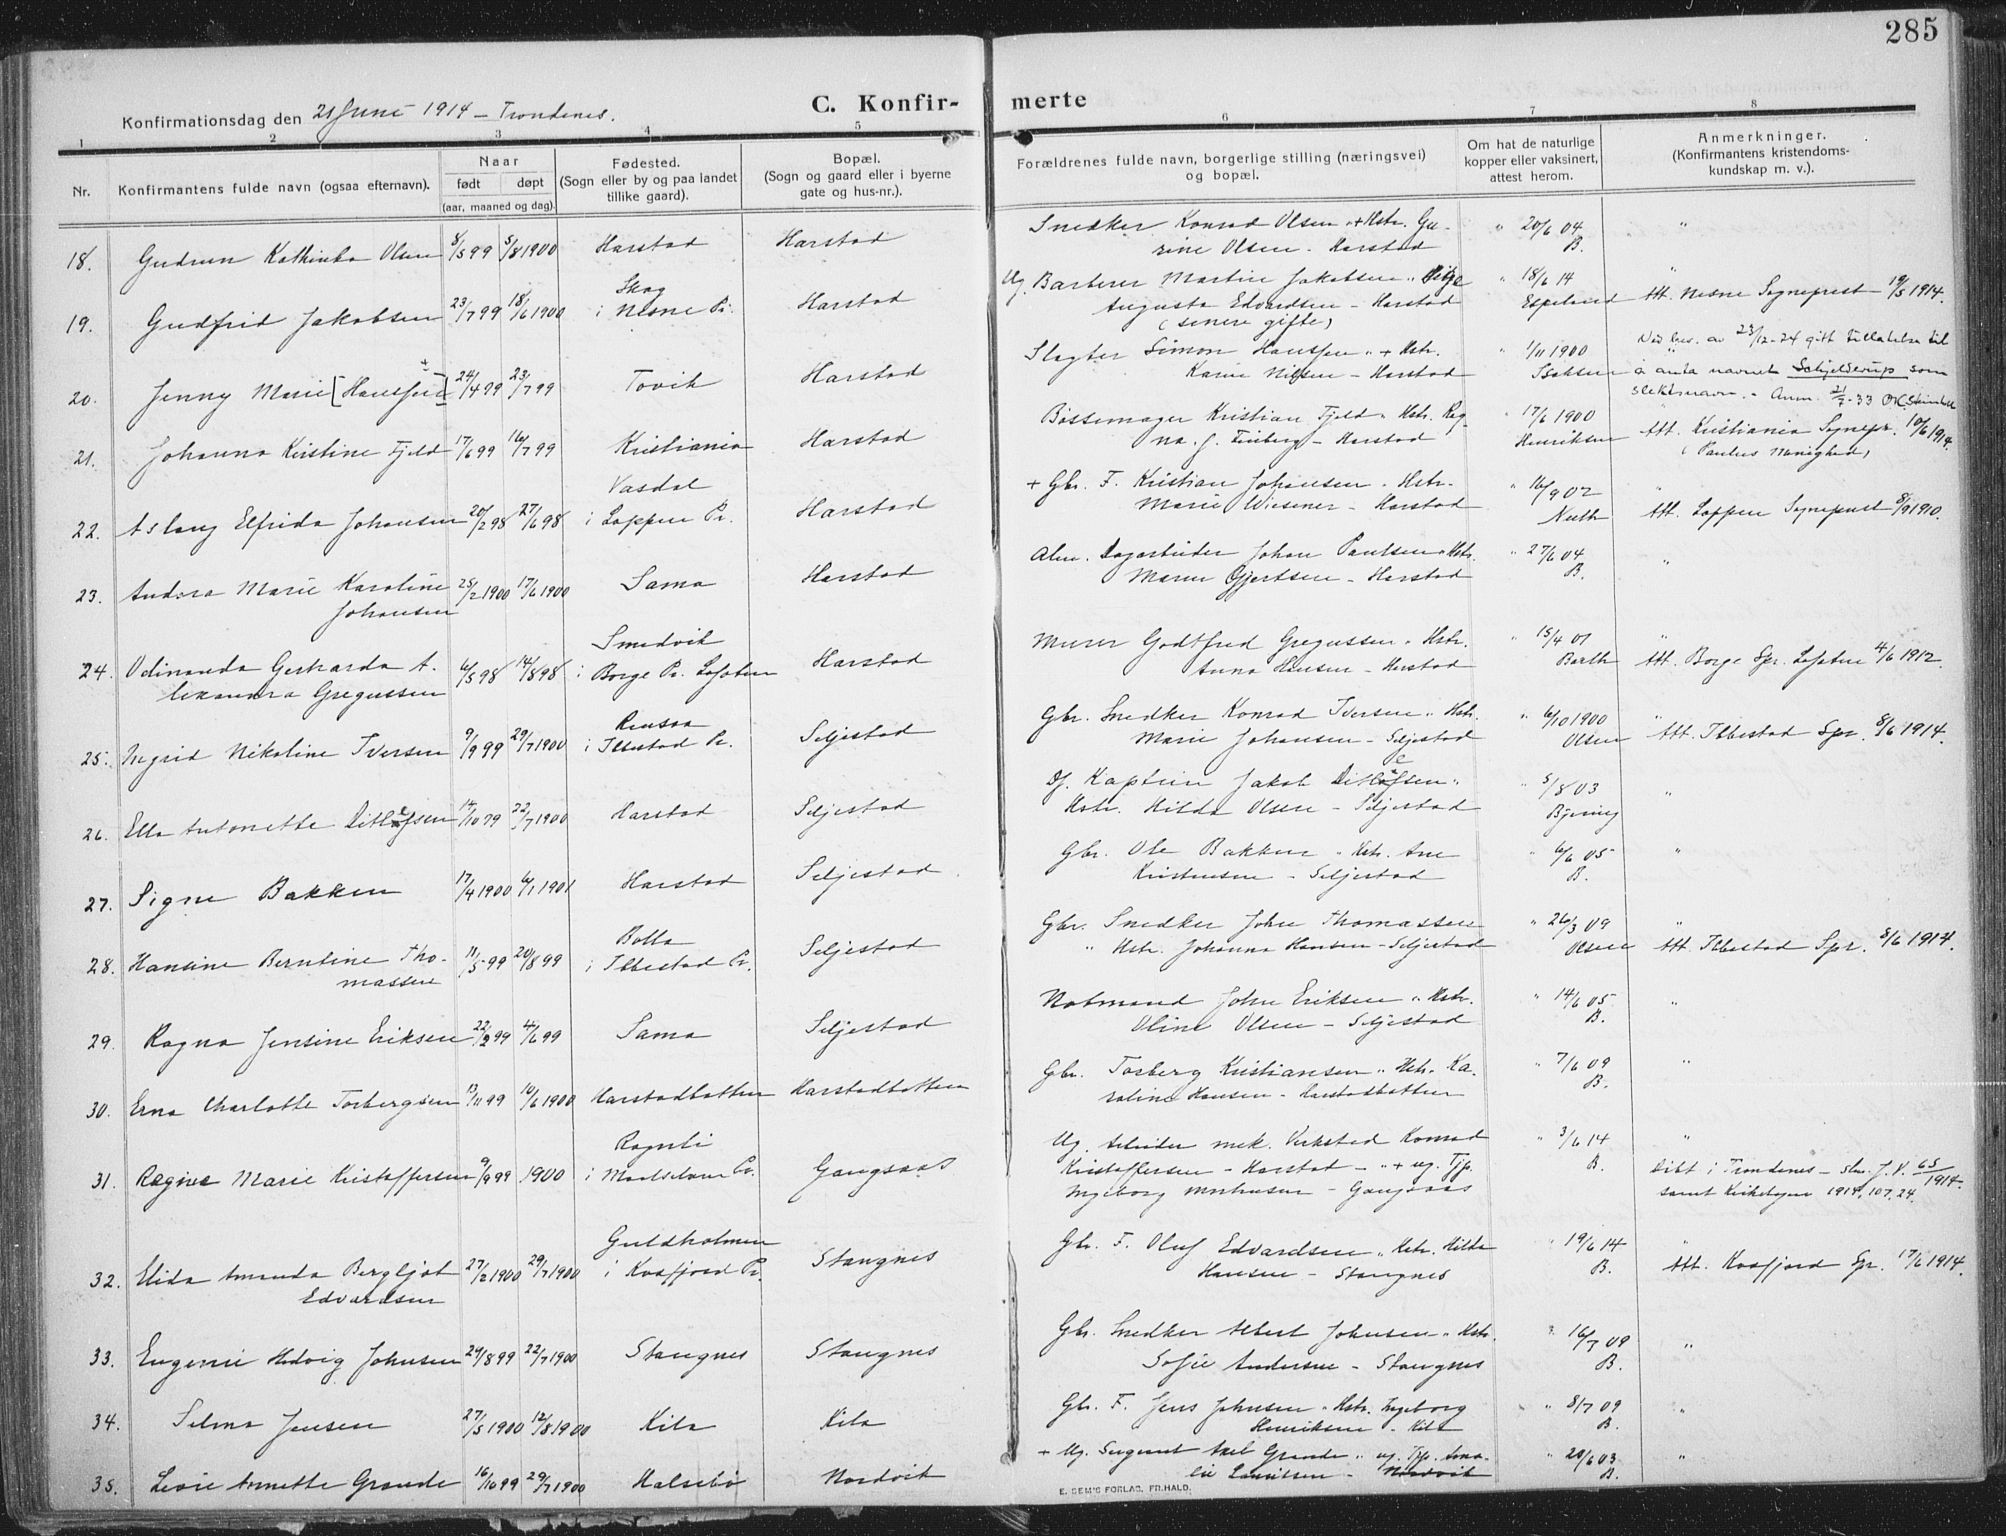 285
C. Konfir- merte
Konfirmationsdag den 21 Juni 1914 – Trondenes.
1 2 3 4 5 6 7 8
Nr. Konfirmantens fulde navn (ogsaa efternavn). Naar født døpt (aar, maaned og dag). Fødested. (Sogn eller by og paa landet tillike gaard). Bopæl. (Sogn og gaard eller i byerne gate og hus-nr.). Forældrenes fulde navn, borgerlige stilling (næringsvei) og bopæl. Om hat de naturlige kopper eller vaksinert, attest herom. Anmerkninger. (Konfirmantens kristendoms-kundskap m. v.).
18. Gudrun Kathinka Olsen 8/5 99 5/8 1900 Harstad Harstad Snedker Konrad Olsen " + Hstr. Gu-
rine Olsen – Harstad " 20/6 04 B. "
19. Gudfrid Jakobsen 23/7 99 18/6 1900 Skog i Nesne Pr. Harstad Ug. Barberer Martin Jakobsen "
Augusta Edvardsen – Harstad
(senere gifte) " 18/6 14 Espeland Att. Nesne Sogneprest 19/5 1914.
20. Jenny Marie [Hanssen] + 24/4 99 23/7 99 Tovik Harstad Slagter Simon Hanssen " + Hstr.
Karen Nilsen – Harstad 1/11 1900 Isaksen
Ved bev. av 23/12-24 gitt tillatelse til
å anta navnet Schjelderup som
slektsnavn. – Anm. 2/7-33
21. Johanna Kristine Fjeld 17/6 99 16/7 99 Kristiania Harstad Bøssemager Kristian Fjeld " Hstr. Rag-
na. J. – Harstad " 17/6 1900 Henriksen Att. Kristiania Sognepr. 10/6 1914.
(Paulus Menighed)
22. Aslaug Elfrida Johansen 20/2 98 27/6 98 Vasdal i Loppen Pr. Harstad + Gbr. F. Kristian Johansen " Hstr.
Marie Wiesener – Harstad " 16/9 02 Att. Loppen Sogneprest 8/9 1910.
23. Andora Marie Karoline
Johansen 25/2 1900 17/6 1900 Sama Harstad Alm. Dagarbeider Johan Paulsen " Hstr.
Maren Gjertsen – Harstad " 27/6 04 B. "
24. Odinanda Gerharda A-
lexandra Gregussen 6/5 98 14/8 98 Smedvik i Borge Pr. Lofoten Harstad Murer Godtfred Gregussen " Hstr.
Anna Hansen – Harstad " 15/4 01 Barth Att. Borge Spr. Lofoten 4/6 1912.
25. Ingrid Nikoline Iversen 9/9 99 29/7 1900 Rensaa i Ibbestad Pr. Seljestad Gbr. Snedker Konrad Iversen " Hstr.
Marie Johansen – Seljestad " 6/10 1900 Olsen Att. Ibbestad Spr. 8/6 1914.
26. Ella Antonette Ditlefsen 14/10 79 22/7 1900 Harstad Seljestad Df. Kaptein Jakob Ditlefsen "
Hstr. Hilda Olsen – Seljestad " 5/8 03 "
27. Signe Bakken 17/4 1900 6/1 1901 Harstad Seljestad Gbr. Ole Bakken " Hstr. Ane
Kristensen – Seljestad " 6/6 05 B. "
28. Hansine Berntine Tho-
massen 11/5 99 20/8 99 Bolla i Ibbestad Pr. Seljestad Gbr. Snedker John Thomassen
" Hstr. Johanna Hansen – Seljestad " 26/3 09 Olsen Att. Ibbestad Spr. 8/6 1914.
29. Ragna Jensine Eriksen 22/2 99 4/6 99 Sama Seljestad Notmand John Eriksen " Hstr.
Oline Olsen – Seljestad " 14/6 05 B. "
30. Erna Charlotte Torbergsen 13/11 99 10/6 1900 Harstadbotten Harstadbotten Gbr. Torberg Kristiansen " Hstr. Ka-
roline Hansen – Harstadbotten " 7/6 09 B. "
31. Ragna Marie Kristoffersen 9/9 99 1900 Rognli i Maalselven Pr. Gangsaas Ug. Arbeider mek. Verksted Konrad
Kristoffersen – Harstad – " + ug. Tjp.
Ingeborg – Gangsaas " 3/6 14 B. " Døbt i Trondenes – J.V. 65/1914.
samt Kirkebogen 1914, 107, 24.
32. Elida Amanda Bergljot
Edvardsen 27/2 1900 29/7 1900 Guldholmen i Kvæfjord Pr. Stangnes Gbr. F. Oluf Edvardsen " Hstr. Hilda
Hansen – Stangnes " 19/6 14 B. Att. Kvæfjord Spr. 17/6 1914.
33. Eugenie Hedvig Johnsen 24/8 99 22/7 1900 Stangnes Stangnes Gbr. Snedker Albert Johnsen " Hstr.
Sofie Andersen – Stangnes " 16/7 09 B. "
34. Selma Jensen 27/5 1900 12/8 1900 Kila Kila Gbr. F. Jens Johnsen " Hstr. Ingeborg
Henriksen – Kila " 8/7 09 B. "
35. Annette Grande 16/10 99 29/7 1900 Halsebø Nordvik + Ug. Sergeant Axel Grande " ug. Tjp. Ama-
lie Lauritsen – Nordvik " 20/6 03 B. "
E. SEM'S FORLAG, FR.HALD.